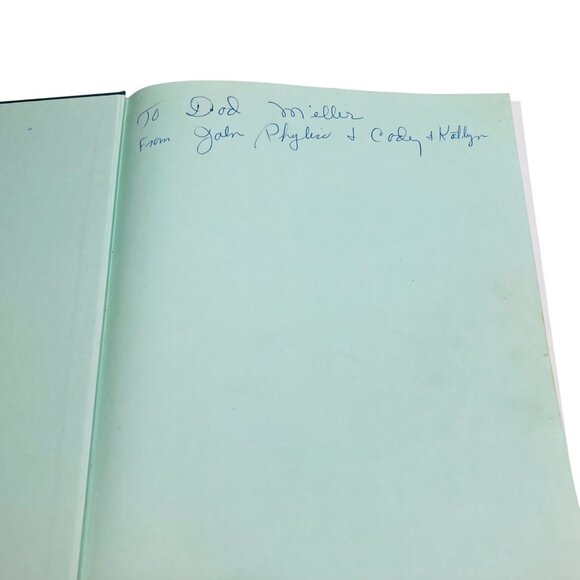 To Dad Miller
From John Phyliss + Codey + Katlyn